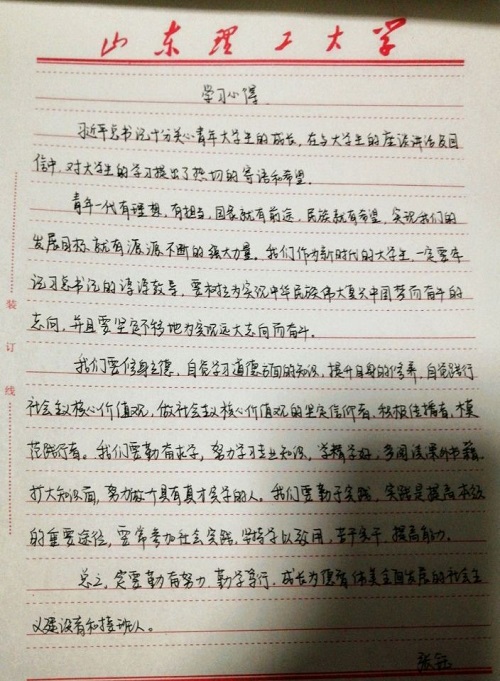 山东理工大学
学习心得
习近平总书记十分关心青年大学生的成长，在与大学生的座谈讲话及回
信中，对大学生的学习提出了热切的寄语和希望。
青年一代有理想，有担当，国家就有前途，民族就有希望，实现我们的
发展目标就有源源不断的强大力量。我们作为新时代的大学生，一定要牢
记习总书记的谆谆教导，要树立为实现中华民族伟大复兴中国梦而奋斗的
志向，并且要坚定不移地为实现远大志向而奋斗。
我们要修身立德，自觉学习道德方面的知识，提升自身的修养，自觉践行
社会主义核心价值观，做社会主义核心价值观的坚实信仰者，积极传播者，模
范践行者。我们要勤奋求学，努力学习专业知识，学精学好，多阅读课外书籍，
扩大知识面，努力做个具有真才实学的人。我们要勤于实践，实践是提高本领
的重要途径，要常参加社会实践，坚持学以致用，苦干实干，提高能力。
总之，定要勤奋努力，勤学笃行，成长为德智体美全面发展的社会主
义建设者和接班人。
张钰
装
订
线